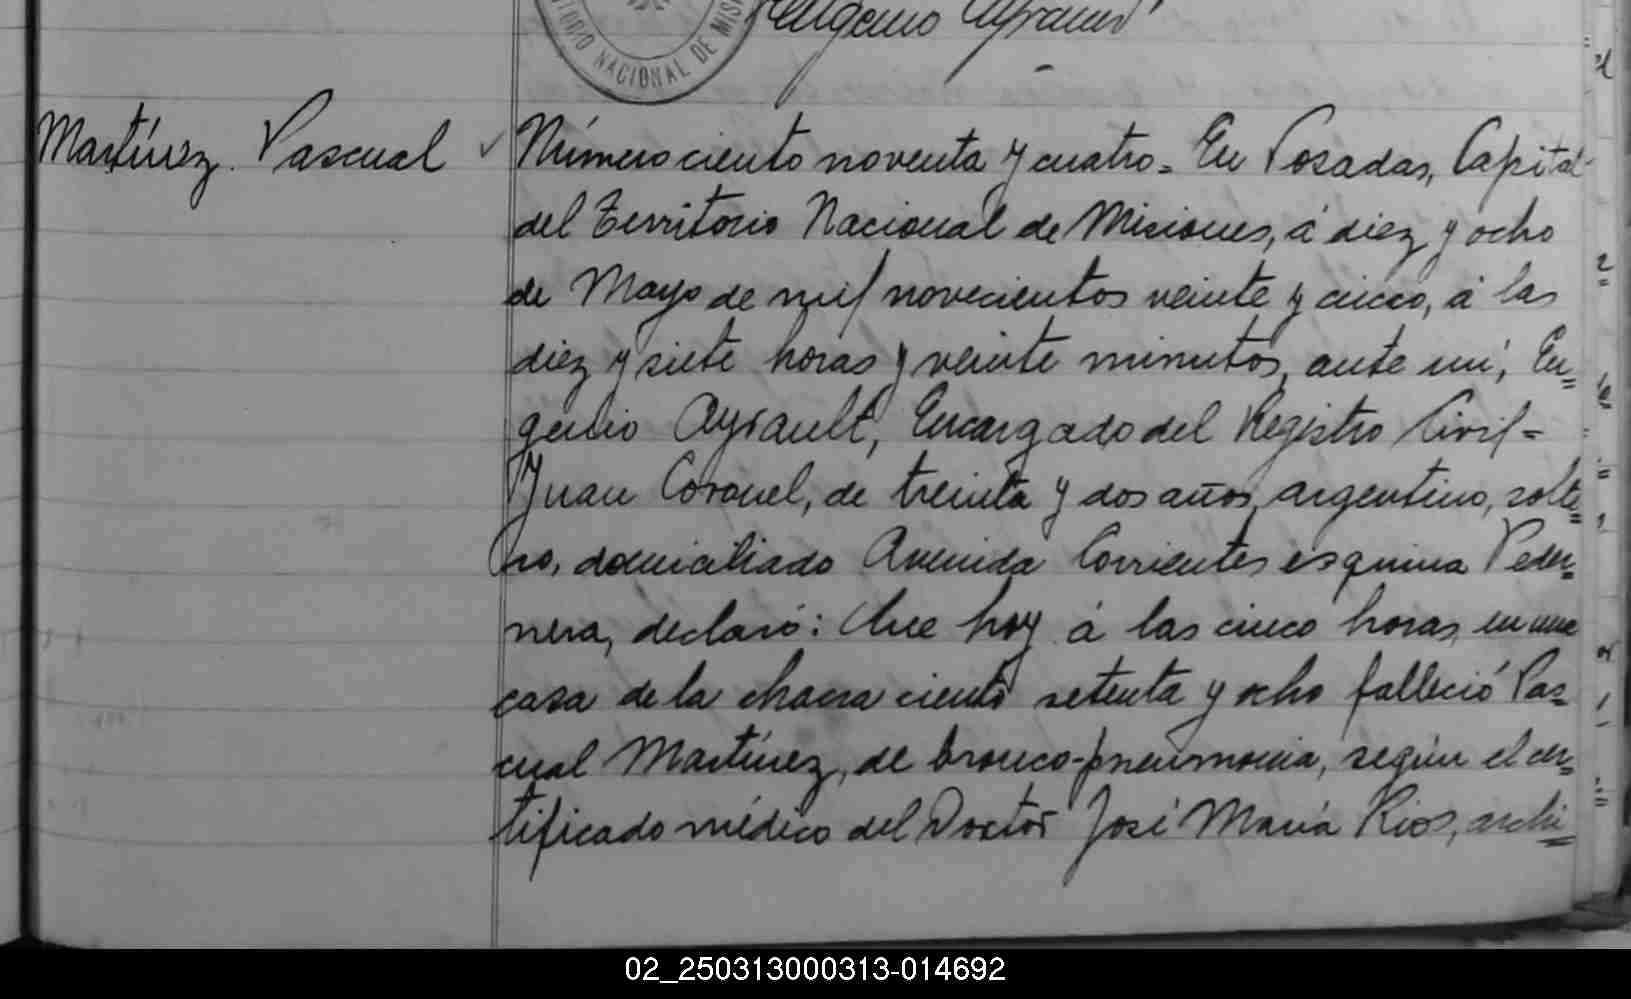 Eugenio Ayrault
NACIONAL DE MIS
Martínez Pascual
Número ciento noventa y cuatro = En Posadas, Capital
del Territorio Nacional de Misiones, á diez y ocho
de Mayo de mil novecientos veinte y cinco, á las
diez y siete horas y veinte minutos, ante mí, Eu=
genio Ayrault, Encargado del Registro Civil =
Juan Coronel, de treinta y dos años, argentino, solte=
ro, domiciliado Avenida Corrientes esquina Peder=
nera, declaró: Que hoy á las cinco horas, en una
casa de la chacra ciento setenta y ocho falleció Pas=
cual Martínez, de bronco-pneumonia, según el cer=
tificado médico del Doctor José María Rios, archi=
02_250313000313-014692